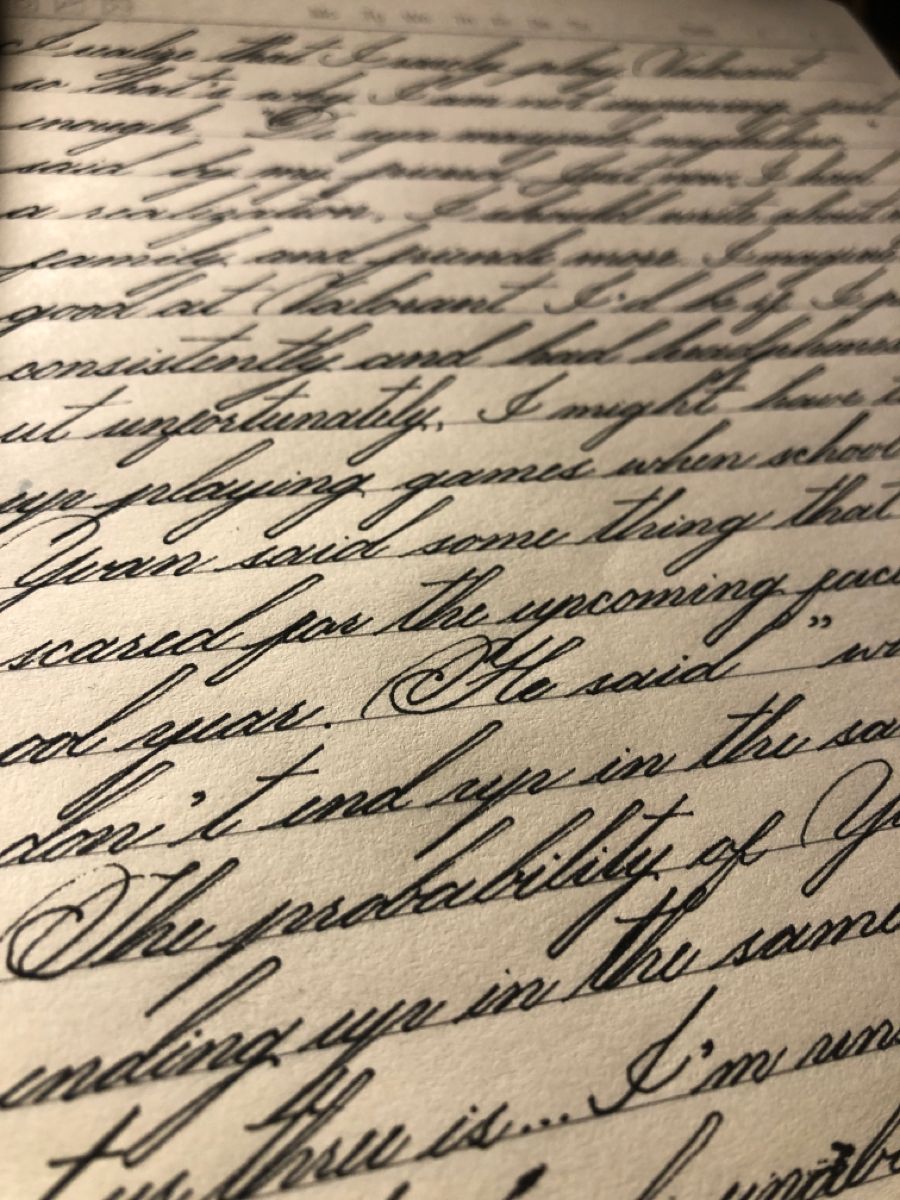 I realize that I rarely play Valorant
so that's why I am not improving
enough.
said by my friend Just now, I had
a realization. I should write about
family and friends more. I
good at Valorant I'd be if I
consistently and had headphones
ut unfortunately, I might have
up playing games when school
Yvan said some thing that
scared for the upcoming
ool year. He said "
don't end up in the
The probability of
ending up in the same
three is... I'm